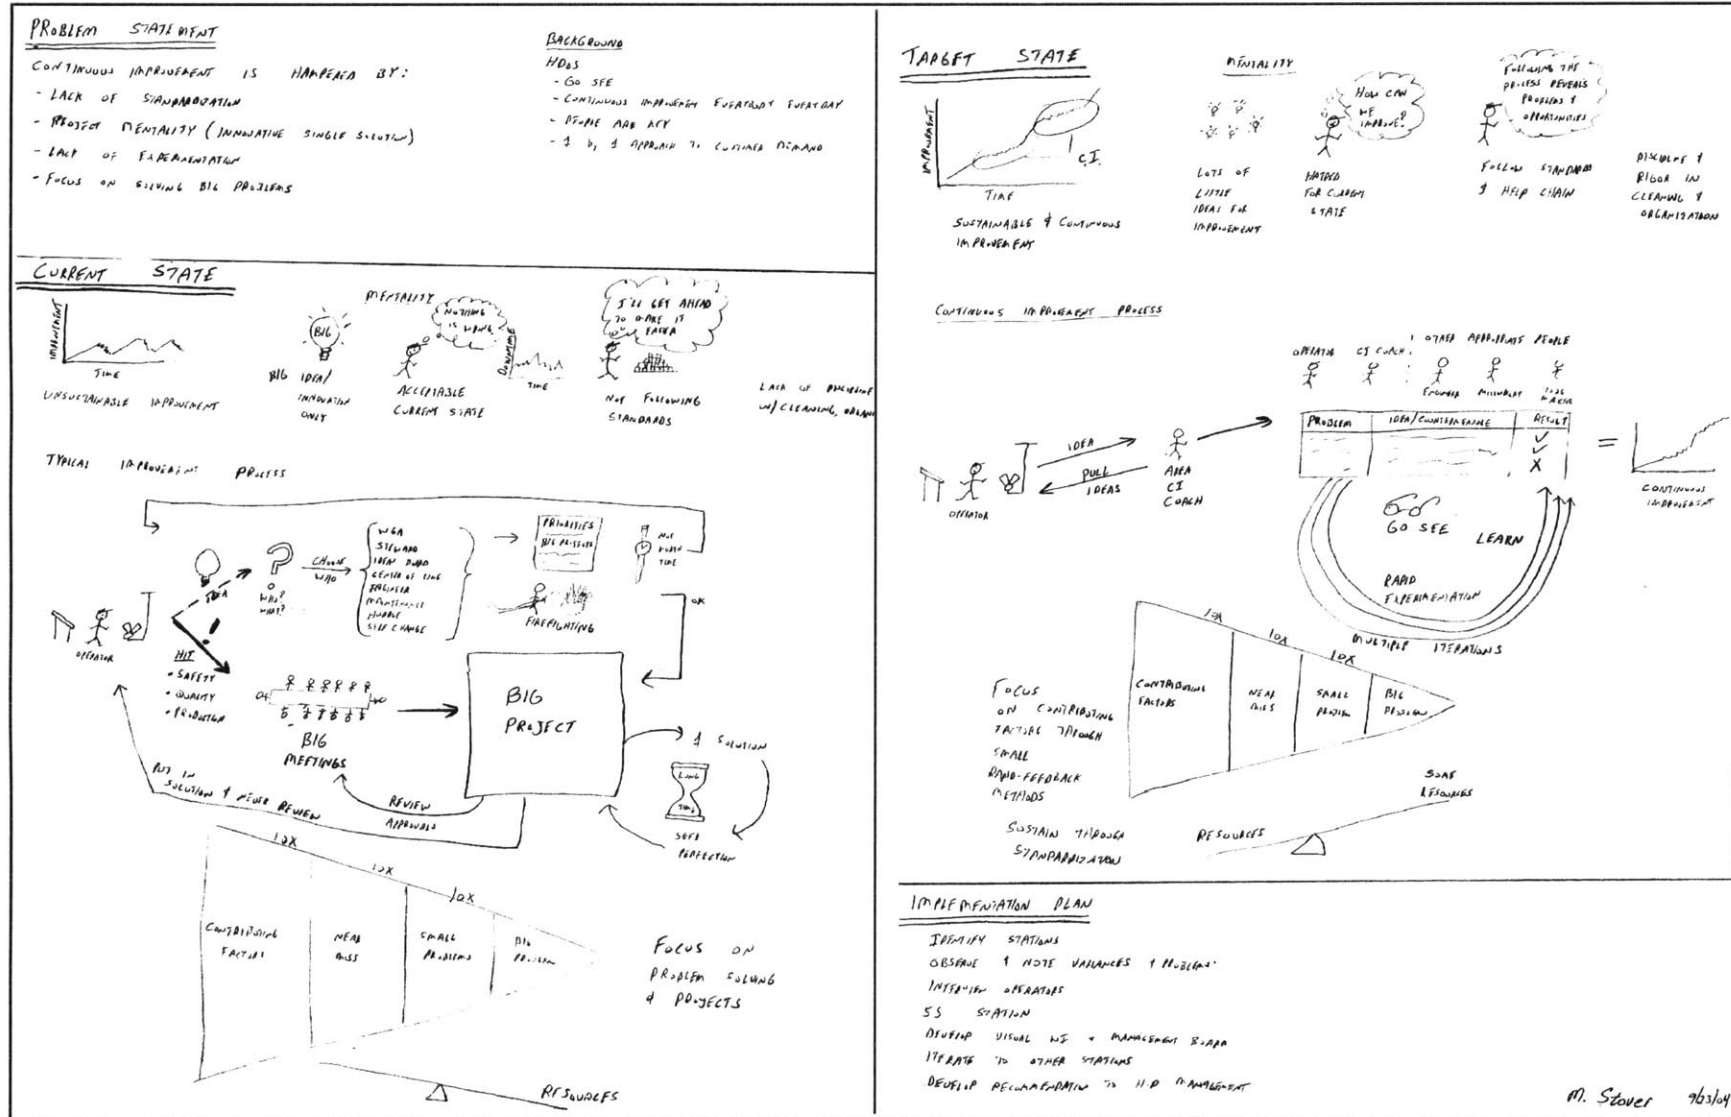 PROBLEM STATEMENT
CONTINUOUS IMPROVEMENT IS HAMPERED BY:
- LACK OF STANDARDIZATION
- PROJECT MENTALITY (INNOVATIVE SINGLE SOLUTION)
- LACK OF EXPERIMENTATION
- FOCUS ON SOLVING BIG PROBLEMS
BACKGROUND
- GO SEE
- CONTINUOUS IMPROVEMENT EVERYBODY EVERYDAY
- PEOPLE ARE KEY
- 1 by 1 APPROACH TO CUSTOMER DEMAND
CURRENT STATE
IMPROVEMENT
TIME
UNSUSTAINABLE IMPROVEMENT
MENTALITY
BIG
BIG IDEA/
INNOVATION
ONLY
NOTHING
IS WRONG
ACCEPTABLE
CURRENT STATE
DOWNTIME
TIME
I'LL GET AHEAD
TO MAKE IT
EASIER
NOT FOLLOWING
STANDARDS
LACK OF DISCIPLINE
W/ CLEANING, ORGAN
TYPICAL IMPROVEMENT PROCESS
OPERATOR
IDEA
WHO?
WHAT?
CHOOSE
WHO
WGA
STEWARD
IDEA BOARD
CENTER OF LINE
ENGINEER
MAINTENANCE
NURSE
SELF CHANGE
PRIORITIES
BIG PROBLEMS
FIREFIGHTING
NOT
WORTH
TIME
OK
HIT
• SAFETY
• QUALITY
• PRODUCTION
BIG
MEETINGS
BIG
PROJECT
1 SOLUTION
LONG
TIME
SEEK
PERFECTION
REVIEW
APPROVALS
PUT IN
SOLUTION & NEVER REVIEW
10X
10X
10X
CONTRIBUTING
FACTORS
NEAR
MISS
SMALL
PROBLEMS
BIG
PROBLEM
FOCUS ON
PROBLEM SOLVING
& PROJECTS
RESOURCES
TARGET STATE
IMPROVEMENT
TIME
C.I.
SUSTAINABLE & CONTINUOUS
IMPROVEMENT
MENTALITY
LOTS OF
LITTLE
IDEAS FOR
IMPROVEMENT
HOW CAN
WE
IMPROVE?
HATRED
FOR CURRENT
STATE
FOLLOWING THE
PROCESS REVEALS
PROBLEMS &
OPPORTUNITIES
FOLLOW STANDARDS
& HELP CHAIN
DISCIPLINE &
RIGOR IN
CLEANING &
ORGANIZATION
CONTINUOUS IMPROVEMENT PROCESS
OPERATOR
IDEA
PULL
IDEAS
AREA
CI
COACH
OPERATOR CI COACH OTHER APPROPRIATE PEOPLE
ENGINEER MILLWRIGHT TOOL
MAKER
PROBLEM IDEA/COUNTERMEASURE RESULT
✓
✓
X
=
CONTINUOUS
IMPROVEMENT
GO SEE
LEARN
RAPID
EXPERIMENTATION
MULTIPLE ITERATIONS
10X
10X
10X
CONTRIBUTING
FACTORS
NEAR
MISS
SMALL
PROBLEM
BIG
PROBLEM
FOCUS
ON CONTRIBUTING
FACTORS THROUGH
SMALL
RAPID-FEEDBACK
METHODS
SUSTAIN THROUGH
STANDARDIZATION
RESOURCES
SOME
RESOURCES
IMPLEMENTATION PLAN
IDENTIFY STATIONS
OBSERVE & NOTE VARIANCES & PROBLEMS
INTERVIEW OPERATORS
5S STATION
DEVELOP VISUAL WI & MANAGEMENT BOARD
ITERATE TO OTHER STATIONS
DEVELOP RECOMMENDATION TO H-D MANAGEMENT
M. Stover 9/23/04